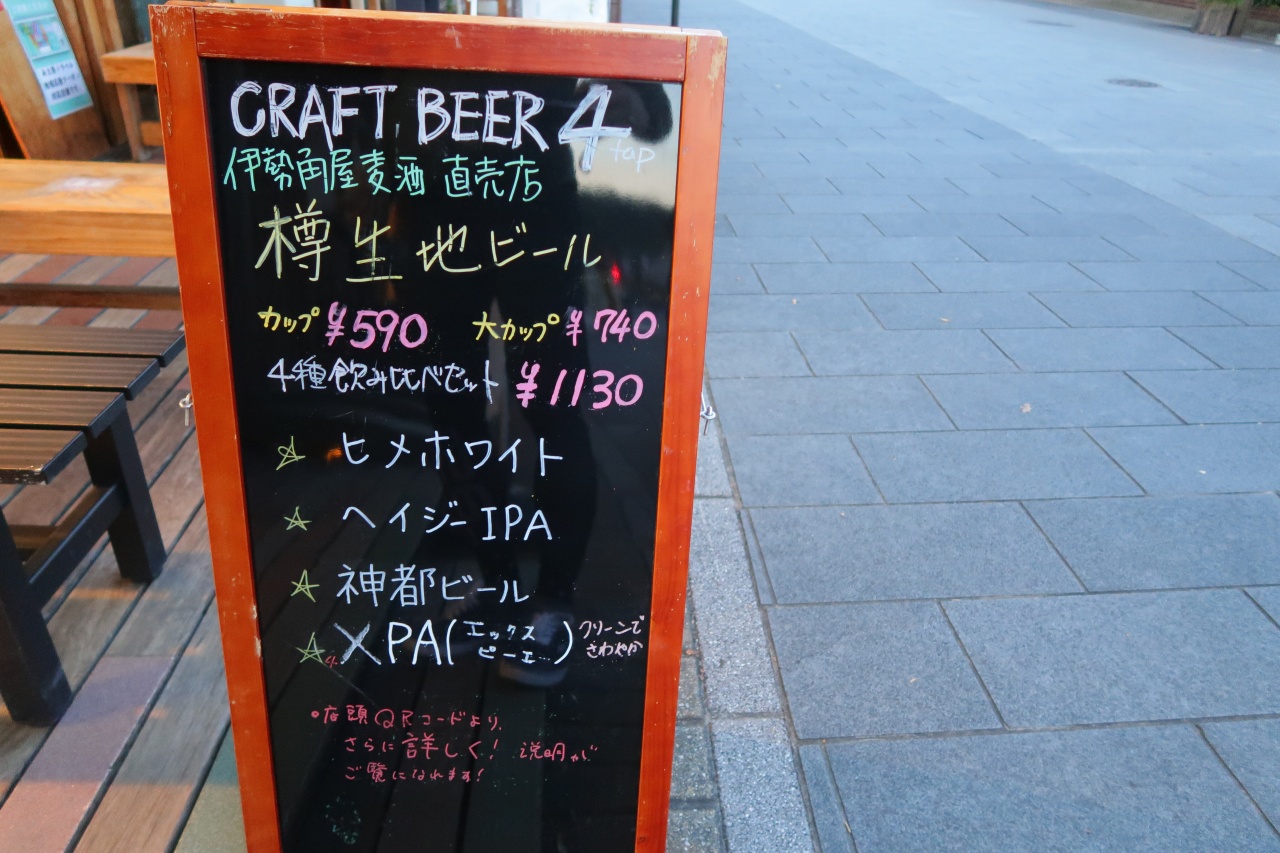 CRAFT BEER 4 tap
伊勢角屋麦酒 直売店
樽生地ビール
カップ ¥590 大カップ ¥740
4種飲み比べセット ¥1130
☆ ヒメホワイト
☆ ヘイジーIPA
☆ 神都ビール
☆ XPA(エックスピーエー) クリーンでさわやか
・店頭QRコードより、
さらに詳しく! 説明が
ご覧になれます!